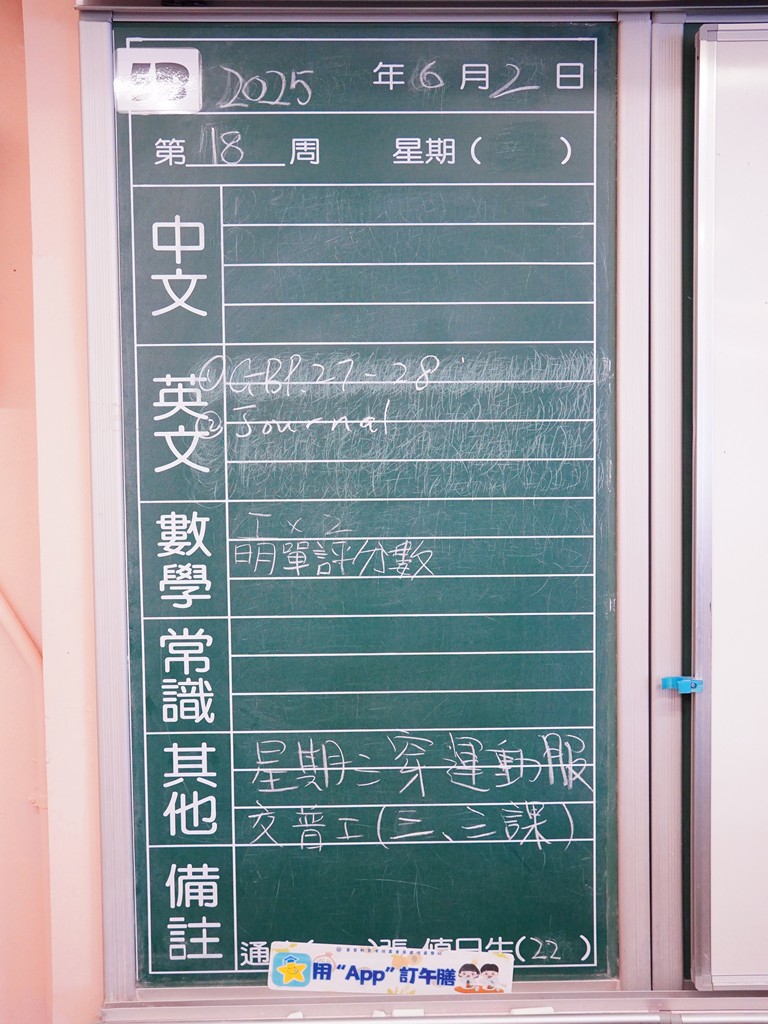 2025 年 6 月 2 日
第 18 周 星期( )
中文
英文
① GBP.27-28
② Journal
數學
I x 2
明單評分數
常識
其他
星期二穿運動服
交普工(三、三課)
備註
通 ( )張 值日生(22)
用“App”訂午膳